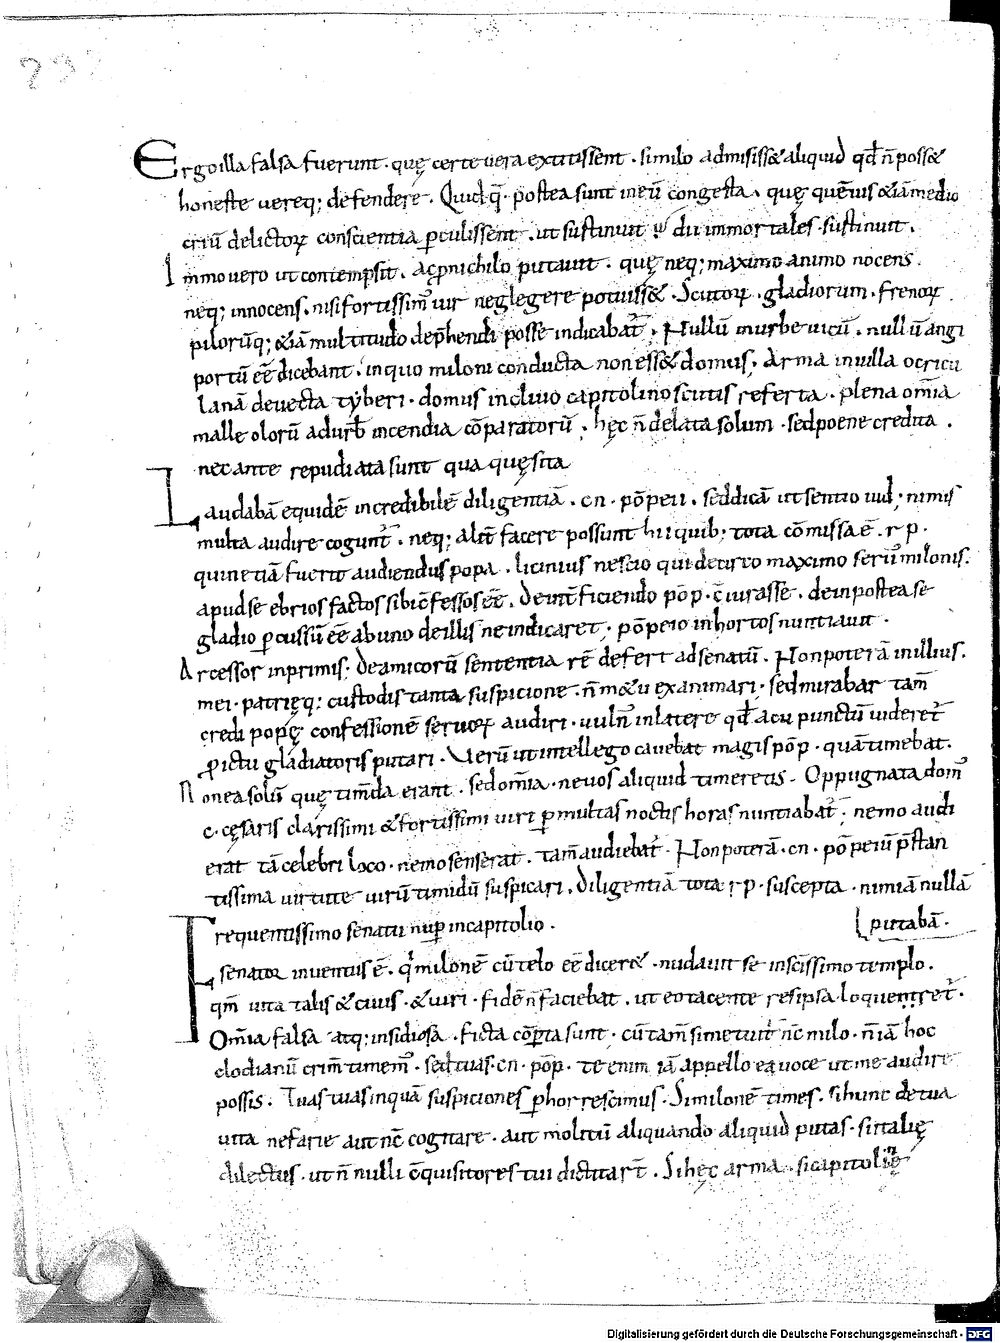 Ergo illa falsa fuerunt. quę certe uera extitissent. similo admisiss& aliquid qđ ñ poss&
honeste uereq; defendere. Quid q̄ postea sunt in eū congesta. quę quēuis &iā medio
criū delictoꝝ conscientia ꝑculissent. ut sustinuit ꝓ dii immortales sustinuit.
Immo uero ut contempsit. ac ꝓ nichilo putauit. quę neq; maximo animo nocens.
neq; innocens. nisi fortissim̄ uir neglegere potuiss&. Scutoꝝ. gladiorum. frenoꝝ
pilorūq; &iā multitudo dep̄hendi posse indicabat̄. Nullū in urbe uicū. nullū angi
portū eē dicebant. in quo miloni conducta non ess& domus. Arma in uilla ocricu
lanā deuecta tyberi. domus in cliuo capitolino scutis referta. plena om̄ia
malleolorū ad urb̄ incendia cōparatorū. hęc ñ delata solum. sed poene credita.
nec ante repudiata sunt qua quęsita
Laudabā equidē incredibilē diligentiā. cn. pōpeii. sed dicā ut sentio iud; nimis
multa audire cogunt̄. neq; alit̄ facere possunt hi quib; tota cōmissa ē. r p.
quin etiā fuerit audiendus popa. licinius nescio qui de circo maximo seruū milonis.
apud se ebrios factos sibi c̄fessos eē. de int̄ficiendo pōp. c̄iurasse. dein postea se
gladio ꝑcussū eē ab uno de illis ne indicaret. pōpeio in hortos nuntiauit.
Arcessor in primis. de amicorū sententia rē defert ad senatū. Non poterā in illius.
mei. patrięq; custodis tanta suspicione. ñ m&u exanimari. sed mirabar tam̄
credi popę confessionē seruoꝝ audiri. uuln̄ in latere qđ acu punctū uideret̄
ꝓ ictu gladiatoris putari. Uerū ut intellego cauebat magis pōp. quā timebat.
Non ea solū quę tim̄da erant. sed om̄ia. ne uos aliquid timeretis. Oppugnata dom̄
c. cęsaris clarissimi & fortissimi uiri ꝑ multas noctis horas nuntiabat̄. nemo audi
erat tā celebri loco. nemo senserat. tam̄ audiebat̄. Non poterā. cn. pōpeiū p̄stan
tissima uirtute uirū timidū suspicari. diligentiā tota r p. suscepta. nimiā nullā
putabā.
Frequentissimo senatu nuꝑ in capitolio.
senator inuentus ē. q̇ milonē cū telo eē dicer&. nudauit se in sc̄issimo templo.
qm̄ uita talis & ciuis. & uiri. fidē ñ faciebat. ut eo tacente res ipsa loqueret̄.
Om̄ia falsa atq; insidiosa. ficta cōꝑta sunt. cū tam̄ si metuit̄ nc̄ milo. ñ iā hoc
clodianū crim̄ timem̄. sed tuas. cn. pōp. te enim iā appello ea uoce ut me audire
possis. Tuas tuas inquā suspiciones ꝑhorrescimus. Si milonē times. si hunc de tua
uita nefarie aut nc̄ cogitare. aut molitū aliquando aliquid putas. si italię
dilectus. ut ñ nulli c̄quisitores tui dictitar̄t. Si hęc arma. si capitolinę